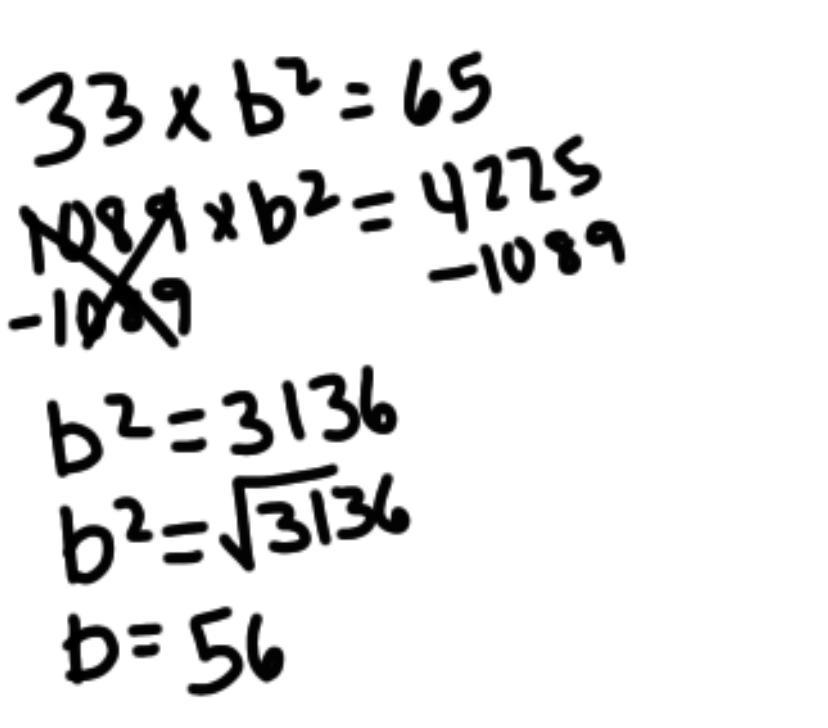 33 x b² = 65
1089 x b² = 4225
-1089 -1089
b² = 3136
b² = √3136
b = 56